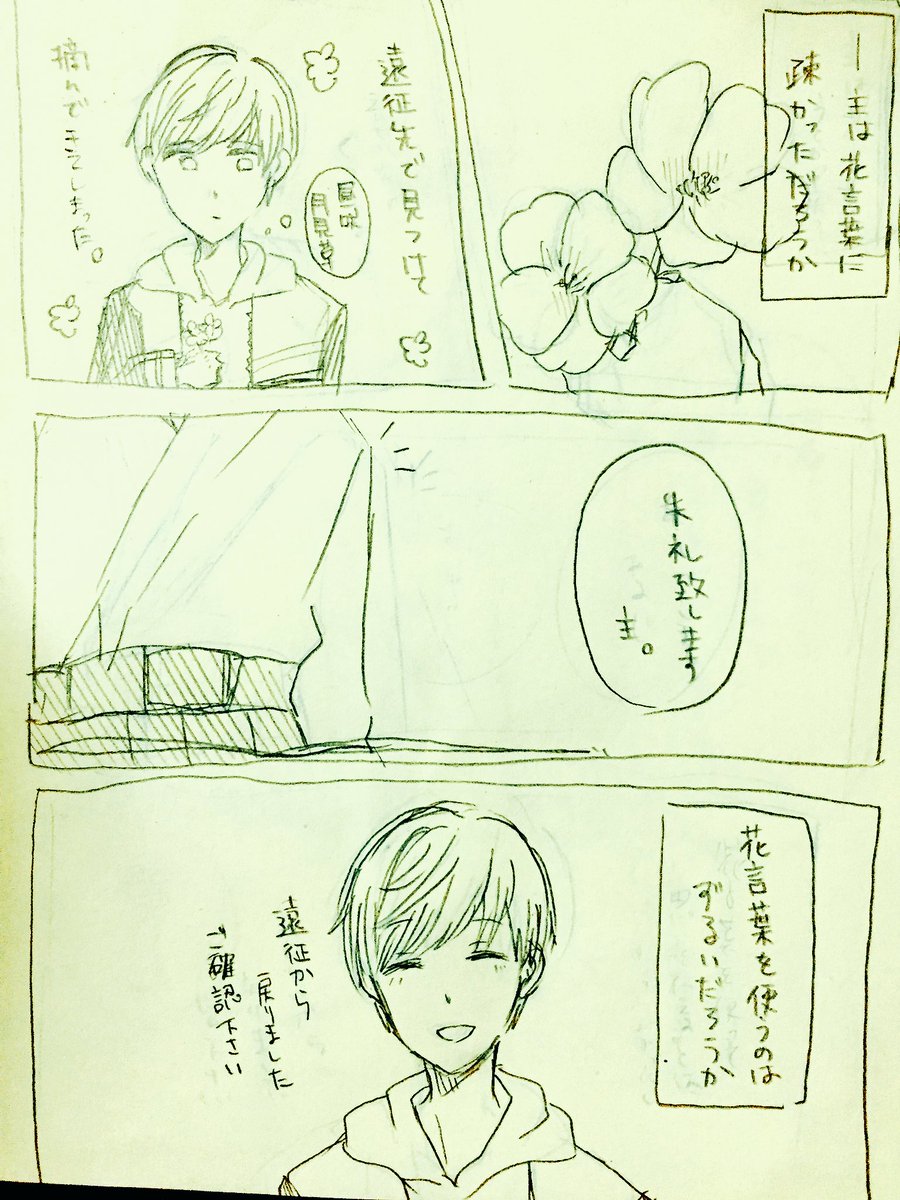 ―主は花言葉に
疎かっただろうか
遠征先で見つけて
摘んできてしまった。
昼咲
月見草
失礼致します
主。
花言葉を使うのは
ずるいだろうか
遠征から
戻りました
ご確認下さい